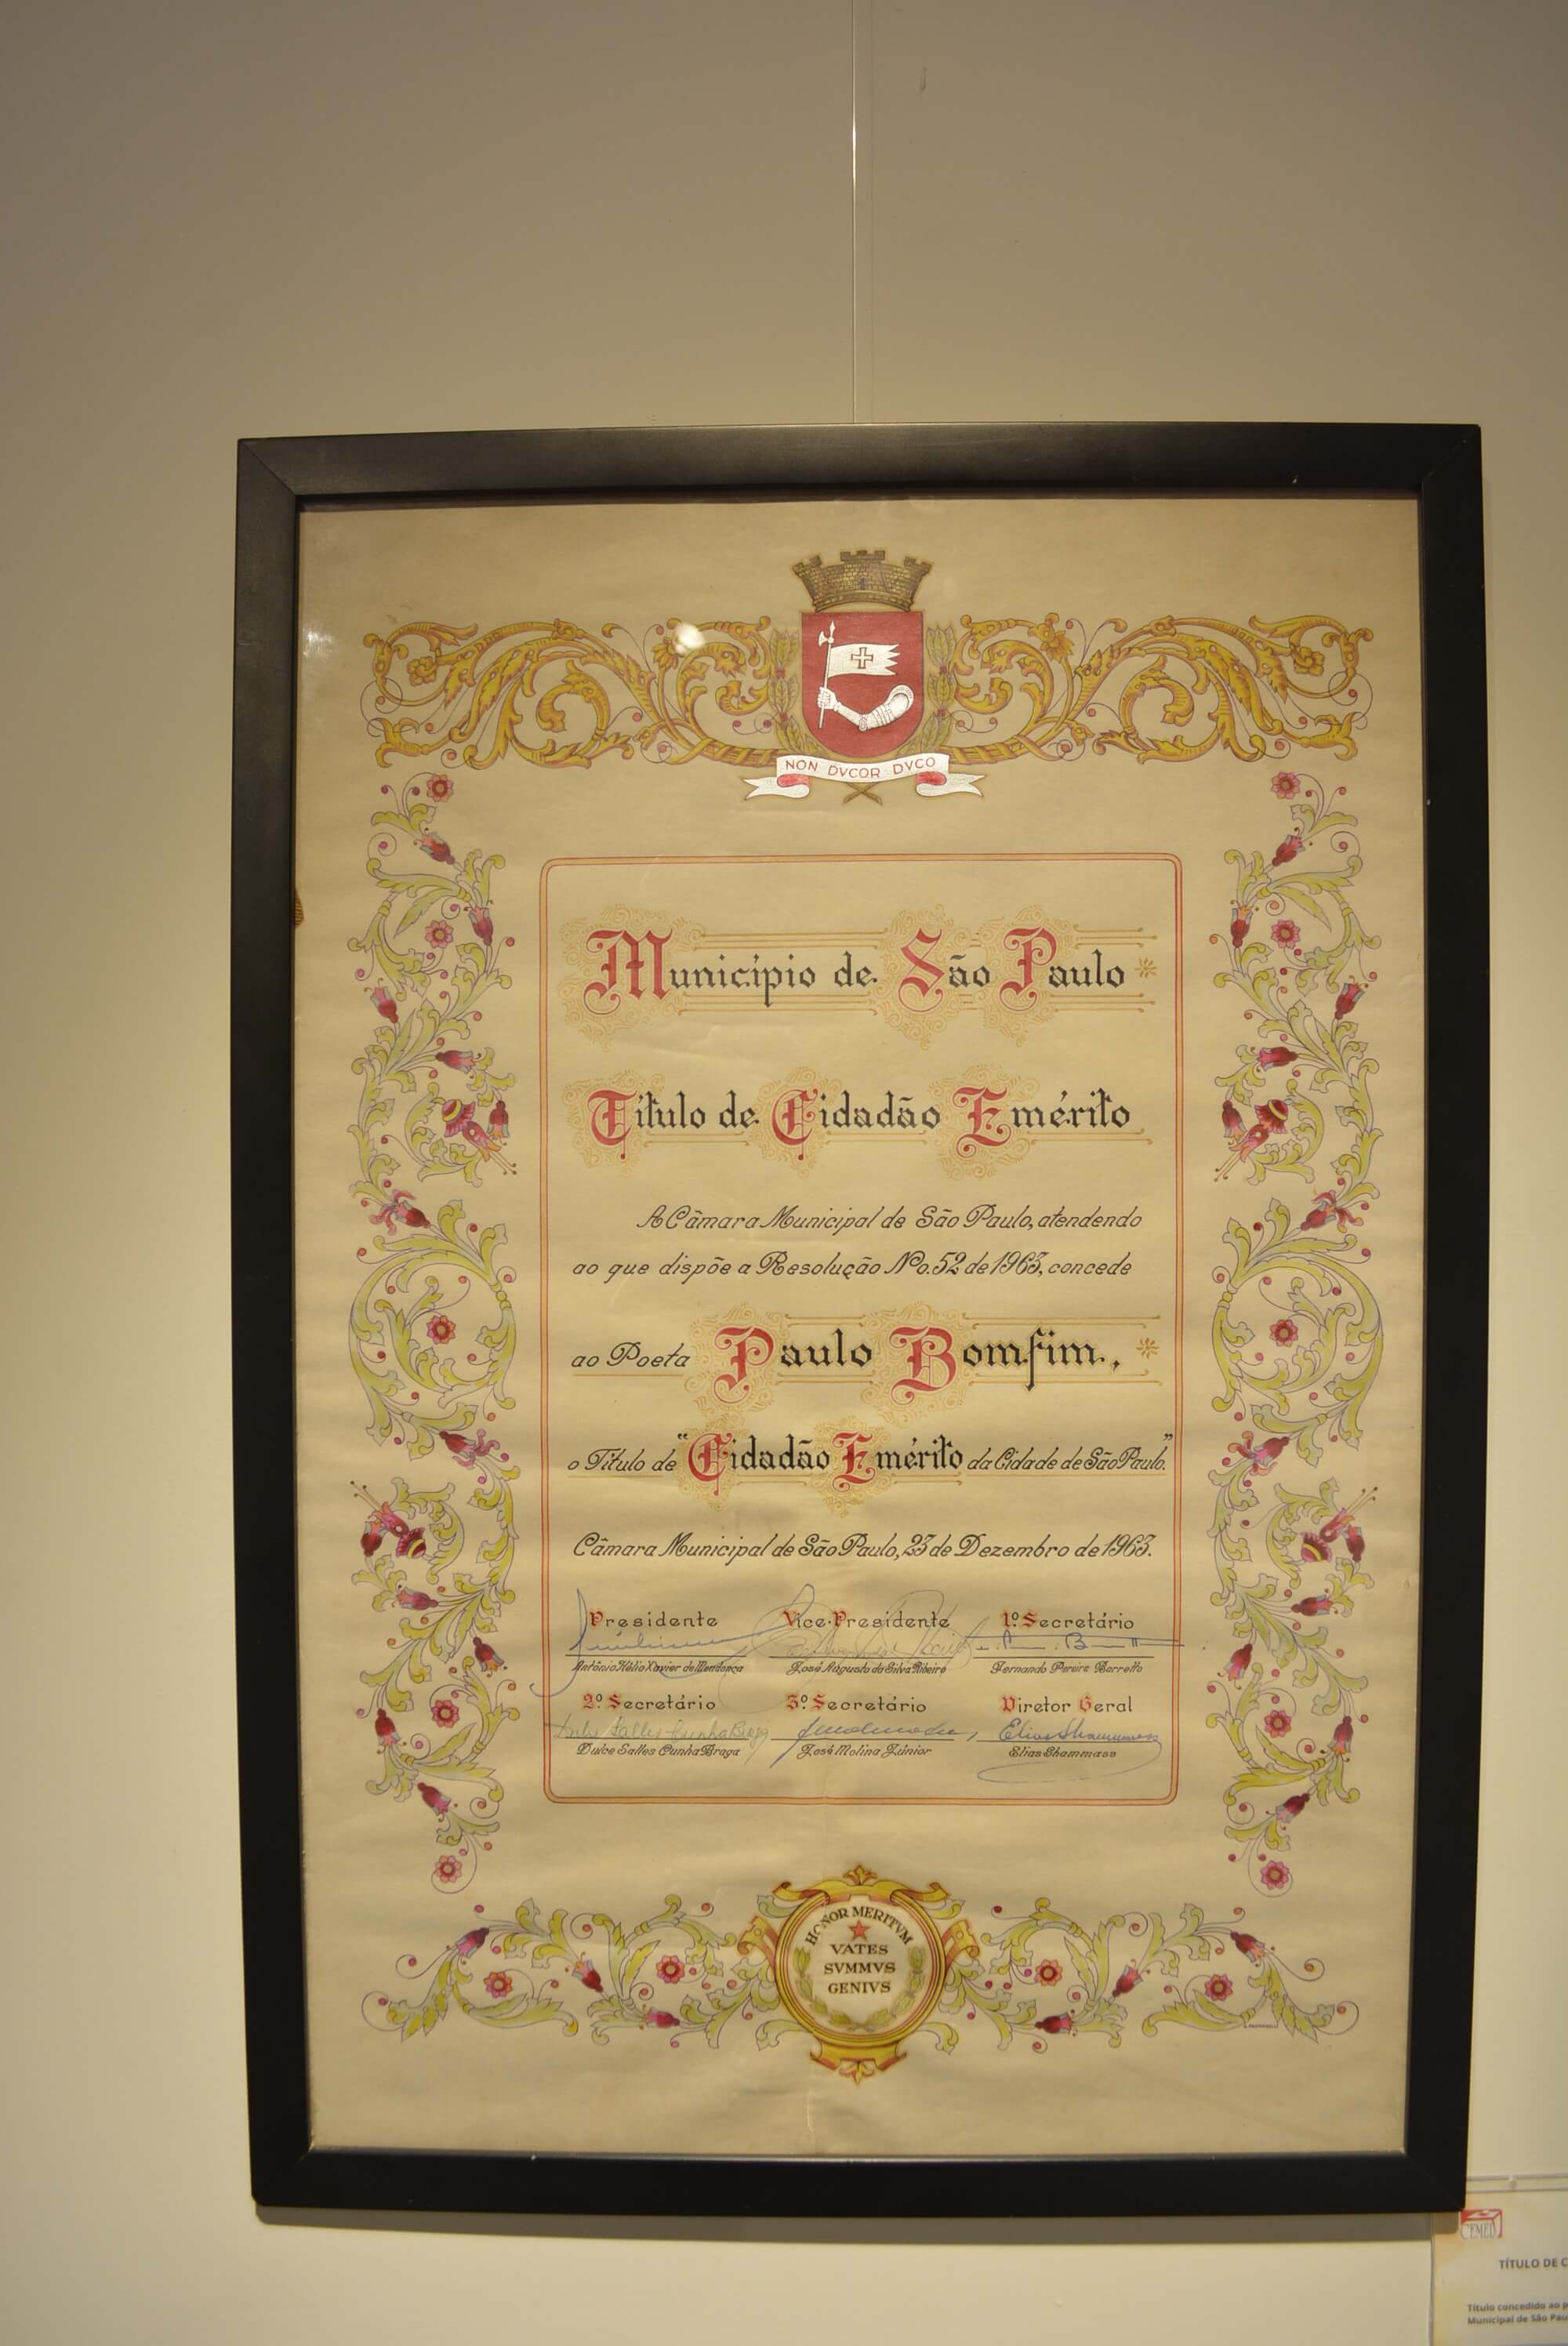 NON DVCOR DVCO
Município de São Paulo
Título de Cidadão Emérito
A Câmara Municipal de São Paulo, atendendo
ao que dispõe a Resolução No. 52 de 1963, concede
ao Poeta Paulo Bomfim,
o Título de "Cidadão Emérito da Cidade de São Paulo."
Câmara Municipal de São Paulo, 23 de Dezembro de 1963.
Presidente Vice-Presidente 1º Secretário
Antônio Hélio Xavier de Mendonça José Augusto da Silva Ribeiro Fernando Pereira Barretto
2º Secretário 3º Secretário Diretor Geral
Dulce Salles Cunha Braga Elias Shammass
Dulce Salles Cunha Braga José Molina Júnior Elias Shammass
HONOR MERITVM
VATES
SVMMVS
GENIVS
CEMED
TÍTULO DE C
Título concedido ao p
Municipal de São Pau